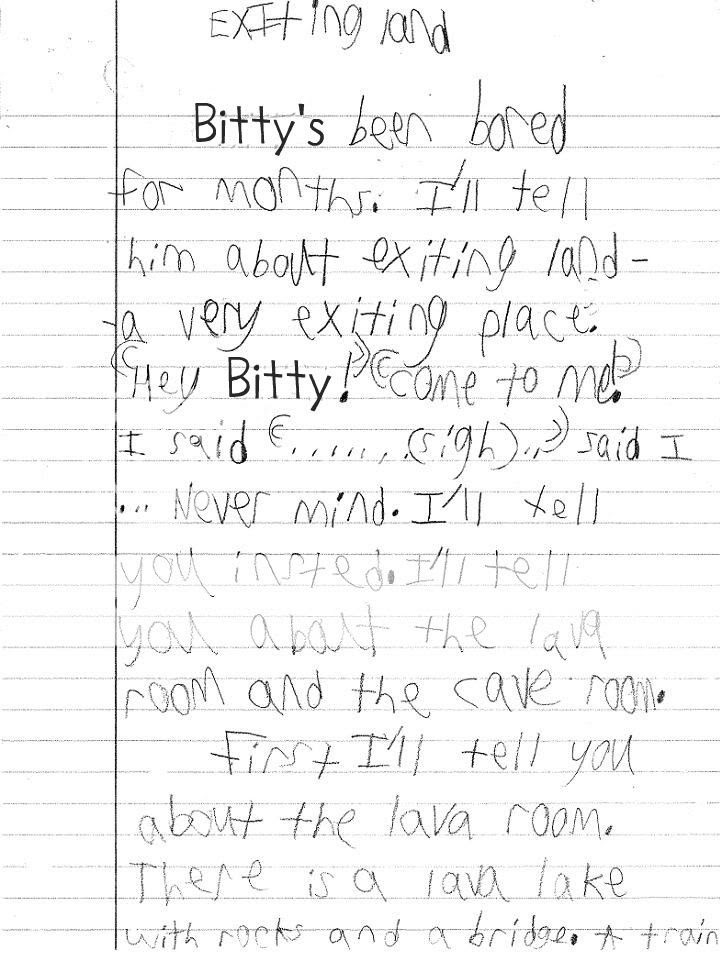 EXIting land
Bitty's been bored
for months. I'll tell
him about exiting land-
-a very exiting place.
"Hey Bitty!" "come to me."
I said ".......(sigh)..." said I
... Never mind. I'll tell
you insted. I'll tell
you about the lava
room and the cave room.
First I'll tell you
about the lava room.
There is a lava lake
with rocks and a bridge. A train